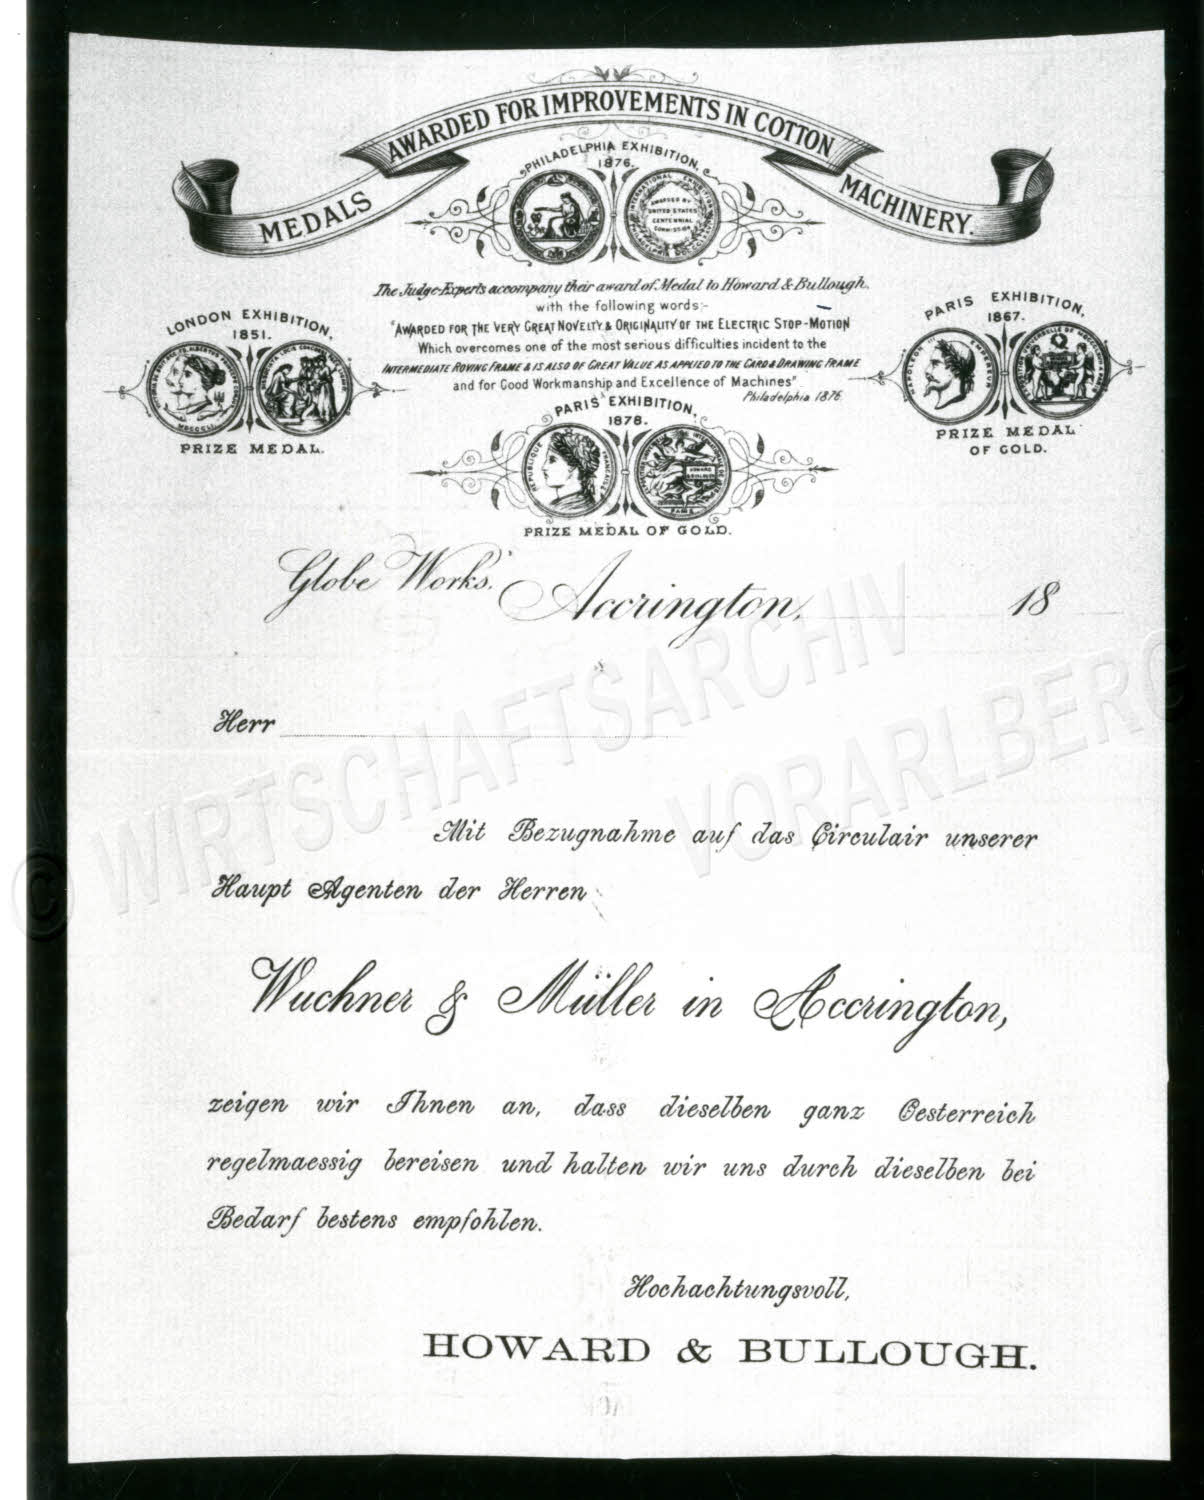 MEDALS AWARDED FOR IMPROVEMENTS IN COTTON MACHINERY.
PHILADELPHIA EXHIBITION,
1876.
INTERNATIONAL EXHIBITION
AWARDED BY
UNITED STATES
CENTENNIAL
COMMISSION
The Judge-Experts accompany their award of Medal to Howard & Bullough.
with the following words:-
"AWARDED FOR THE VERY GREAT NOVELTY & ORIGINALITY OF THE ELECTRIC STOP-MOTION
Which overcomes one of the most serious difficulties incident to the
INTERMEDIATE ROVING FRAME & IS ALSO OF GREAT VALUE AS APPLIED TO THE CARD & DRAWING FRAME
and for Good Workmanship and Excellence of Machines"
Philadelphia 1876.
LONDON EXHIBITION,
1851.
MDCCCLI
PRIZE MEDAL.
PARIS EXHIBITION,
1867.
NAPOLEON III EMPEREUR
PRIZE MEDAL
OF GOLD.
PARIS EXHIBITION,
1878.
REPUBLIQUE FRANCAISE
HOWARD
& BULLOUGH
PARIS
PRIZE MEDAL OF GOLD.
Globe Works, Accrington, 18
Herr
Mit Bezugnahme auf das Circulair unserer
Haupt Agenten der Herren
Wuchner & Müller in Accrington,
zeigen wir Ihnen an, dass dieselben ganz Oesterreich
regelmaessig bereisen und halten wir uns durch dieselben bei
Bedarf bestens empfohlen.
Hochachtungsvoll,
HOWARD & BULLOUGH.
© WIRTSCHAFTSARCHIV
VORARLBERG